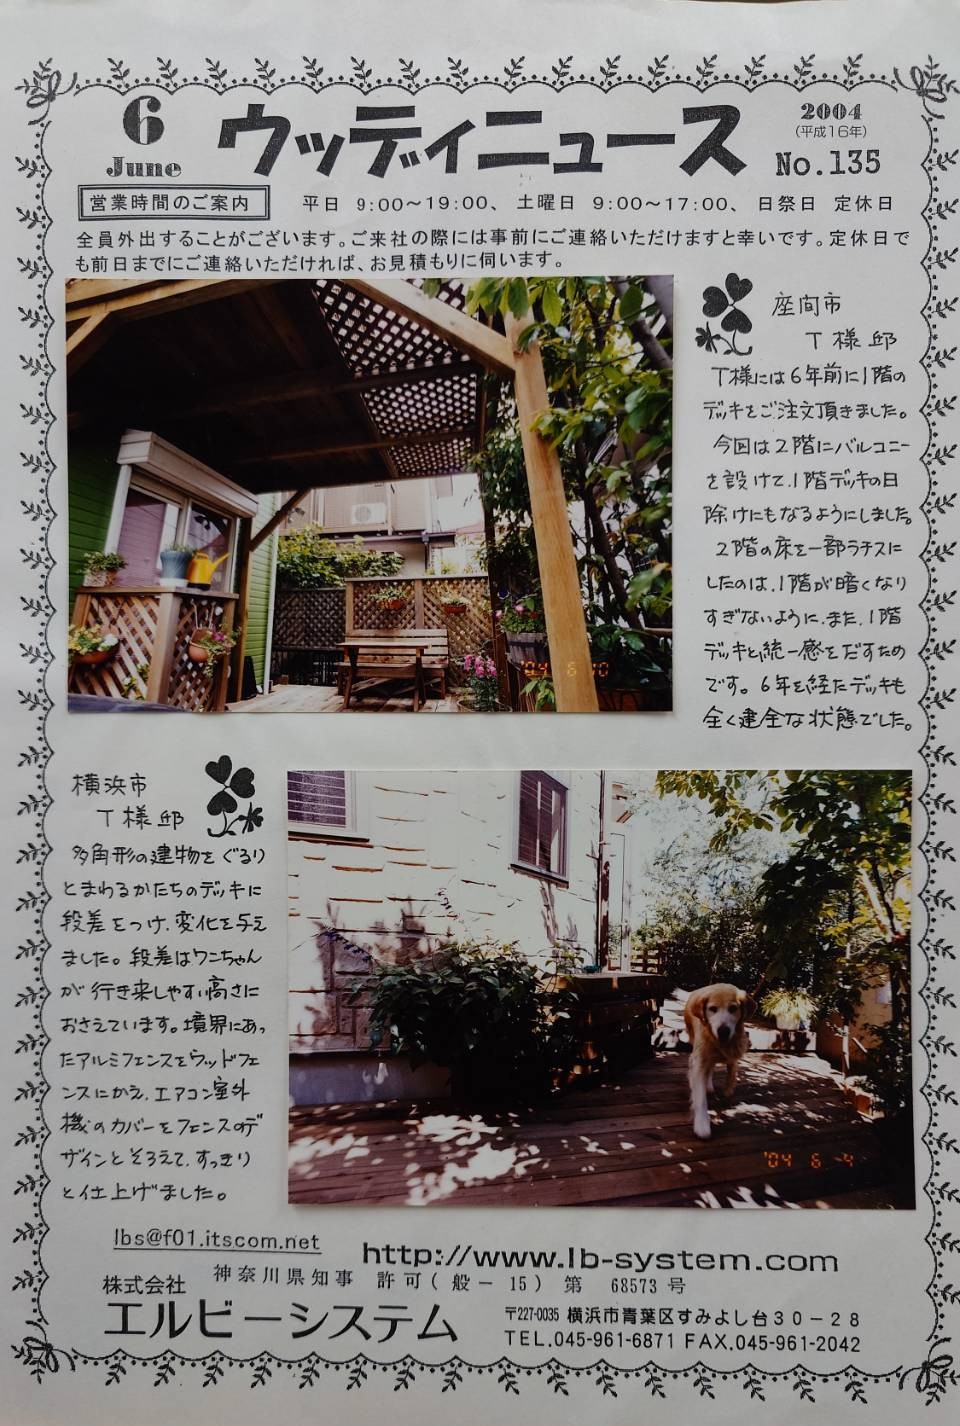 6
June
ウッディニュース
2004
(平成16年)
No.135
営業時間のご案内
平日 9:00～19:00、 土曜日 9:00～17:00、 日祭日 定休日
全員外出することがございます。ご来社の際には事前にご連絡いただけますと幸いです。定休日で
も前日までにご連絡いただければ、お見積もりに伺います。
座間市
T様邸
T様には6年前に1階の
デッキをご注文頂きました。
今回は2階にバルコニー
を設けて、1階デッキの日
除けにもなるようにしました。
2階の床を一部ラチスに
したのは、1階が暗くなり
すぎないように、また、1階
デッキと統一感をだすため
です。6年を経たデッキも
全く健全な状態でした。
'04 6 10
横浜市
T様邸
多角形の建物をぐるり
とまわるかたちのデッキに
段差をつけ、変化を与え
ました。段差はワニちゃん
が行き来しやすい高さに
おさえています。境界にあっ
たアルミフェンスをウッドフェ
ンスにかえ、エアコン室外
機のカバーをフェンスのデ
ザインとそろえて、すっきり
と仕上げました。
'04 6 4
lbs@f01.itscom.net
http://www.lb-system.com
神奈川県知事 許可(般－15) 第 68573号
株式会社
エルビーシステム
〒227-0035 横浜市青葉区すみよし台30－28
TEL.045-961-6871 FAX.045-961-2042